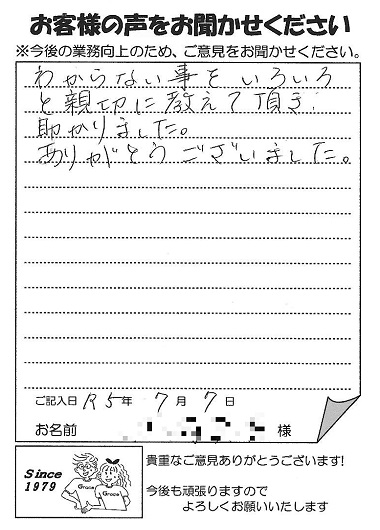 お客様の声をお聞かせください
※今後の業務向上のため、ご意見をお聞かせください。
わからない事をいろいろ
と親切に教えて頂き、
助かりました。
ありがとうございました。
ご記入日 R5年 7月 7日
お名前 様
Since
1979
Grace
Grace
貴重なご意見ありがとうございます!
今後も頑張りますので
よろしくお願いいたします